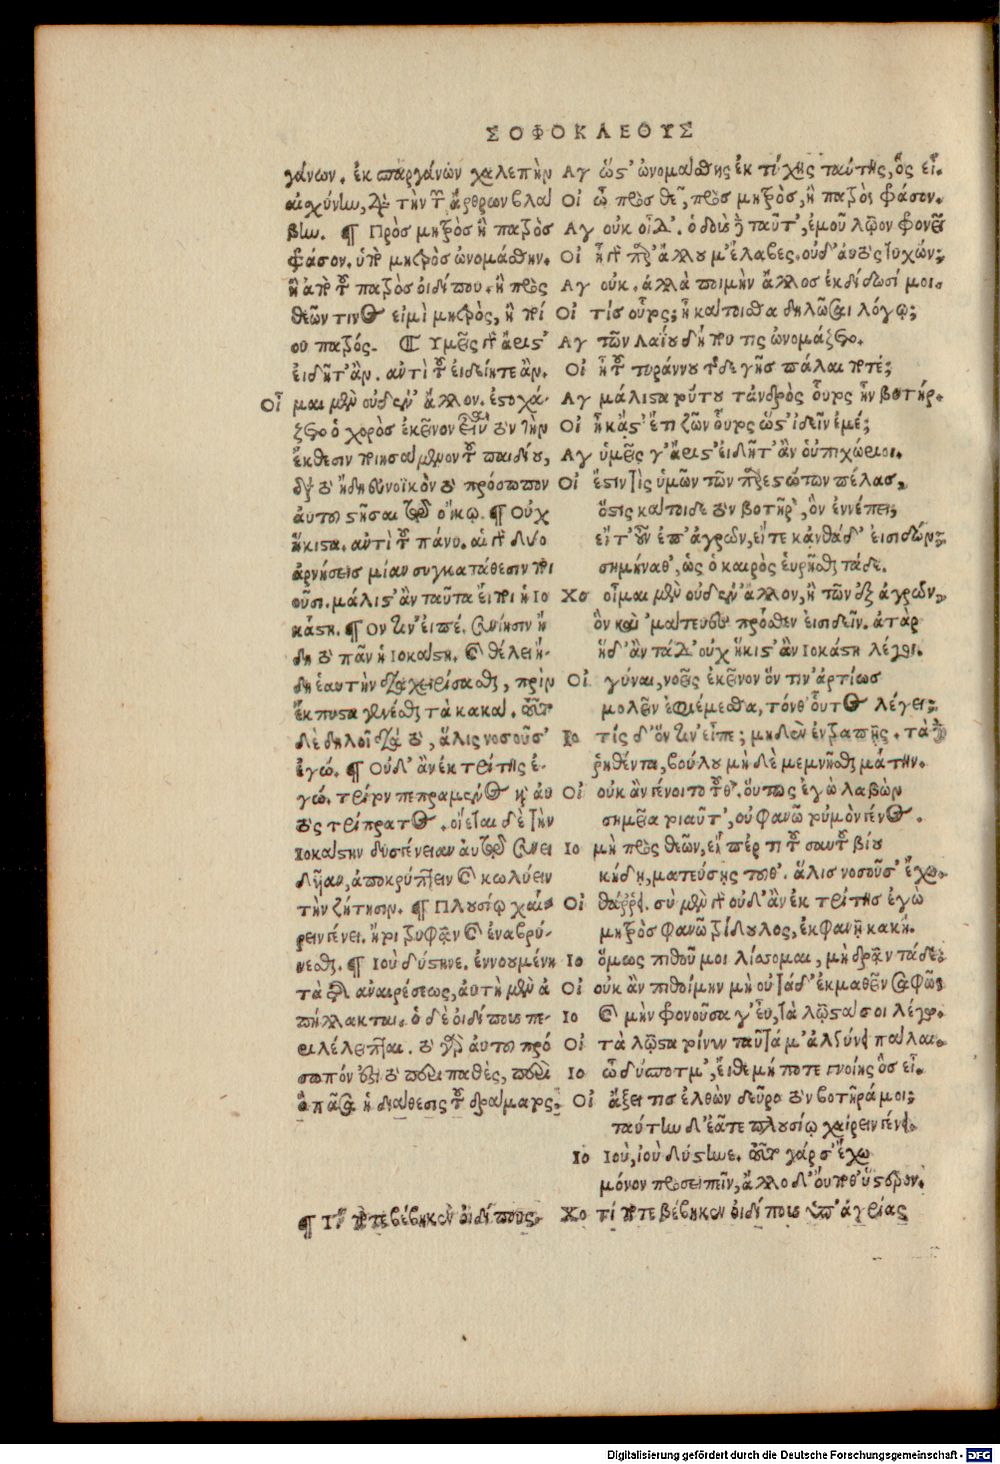 ΣΟΦΟΚΛΕΟΥΣ
γάνων. ἐκ σπαργάνων χαλεπὴν
αἰσχύνην, διὰ τὴν τῶν ἄρθρων βλάβην. ¶ Πρὸς μητρὸς ἢ πατρὸς
φράσον. ὑπὸ μητρὸς ὠνομάσθην.
ἢ ἀπὸ τοῦ πατρὸς οἰδίπου. ἢ πρὸς
θεῶν τινος εἰμὶ μητρὸς, ἢ
ου πατρός. Υμεῖς γὰρ ἄριστ'
εἰδῆτ' ἂν. ἀντὶ τοῦ εἰδείητε ἂν.
Οἶμαι μὲν οὐδέν' ἄλλον. ἐστοχάζετο ὁ χορὸς ἐκεῖνον εἶναι τὸν τὴν
ἔκθεσιν ποιησάμενον τοῦ παιδίου,
αὐτοῦ στῆσαι τῷ οἴκῳ. ¶ Οὐχ
ἥκιστα. ἀντὶ τοῦ πάνυ. αἱ γὰρ δύο
ἀρνήσεις μίαν συγκατάθεσιν ποιοῦσι. μάλιστ' ἂν ταῦτα εἴποι ἡ Ιοκάστη. ¶ Ον τιν' εἶπέ. ἤδη τὸ πᾶν ἡ Ιοκάστη. καὶ θέλει ἤδη ἑαυτὴν διαχειρίσασθαι, πρὶν
ἔκπυστα γενέσθαι τὰ κακά. τοῦτο
δὲ δηλοῖ διὰ τοῦ, ἅλις νοσοῦσ'
ἐγώ. ¶ Οὐδ' ἂν ἐκ τρίτης ἐγώ. τρίτον πεπραμένος καὶ αὐτὸς τρίπρατος. οἴεται δὲ τὴν
Ιοκάστην δυσγένειαν αὐτῷ
ἀποκρύπτειν καὶ κωλύειν
τὴν ζήτησιν. ¶ Πλουσίῳ χαίρειν γένει. ἤτοι τρυφᾶν καὶ ἐναβρύνεσθαι. ¶ Ιοὺ δύστηνε. ἐννουμένη
τὰ τῆς ἀναιρέσεως, αὐτὴ μὲν ἀπήλλακται. ὁ δὲ οἰδίπους περιλέλειπται. τὸ γὰρ αὐτοῦ πρόσωπόν ἐστι τὸ περιπαθὲς, περὶ
ὃ πᾶσα ἡ διάθεσις τοῦ δράματος.
¶ Τί ποτε βέβηκεν οἰδίπους.
Αγ ὥστ' ὠνομάσθης ἐκ τύχης ταύτης, ὃς εἶ.
Οἰ ὦ πρὸς θεῶν, πρὸς μητρὸς, ἢ πατρὸς φράσον.
Αγ οὐκ οἶδ'. ὁ δοὺς δὲ ταῦτ', ἐμοῦ λῷον φρονεῖ
Οἰ ἦ γὰρ παρ' ἄλλου μ' ἔλαβες. οὐδ' αὐτὸς τυχών;
Αγ οὐκ. ἀλλὰ ποιμὴν ἄλλος ἐκδίδωσί μοι.
Οἰ τίς οὗτος; ἦ κάτοισθα δηλῶσαι λόγῳ;
Αγ τῶν Λαΐου δήπου τις ὠνομάζετο.
Οἰ ἦ τοῦ τυράννου τῆσδε γῆς πάλαι ποτέ;
Αγ μάλιστα τούτου τἀνδρὸς οὗτος ἦν βοτήρ.
Οἰ ἦ κἄστ' ἔτι ζῶν οὗτος ὥστ' ἰδεῖν ἐμέ;
Αγ ὑμεῖς γ' ἄριστ' εἰδῆτ' ἂν οὑπιχώριοι.
Οἰ ἔστιν τὶς ὑμῶν τῶν παρεστώτων πέλας,
ὅστις κάτοιδε τὸν βοτῆρ', ὃν ἐννέπει;
εἴτ' οὖν ἐπ' ἀγρῶν, εἴτε κἀνθάδ' εἰσιδών;
σημήναθ', ὡς ὁ καιρὸς εὑρῆσθαι τάδε.
Χο οἶμαι μὲν οὐδέν' ἄλλον, ἢ τὸν ἐξ ἀγρῶν,
ὃν καὶ 'μάτευες πρόσθεν εἰσιδεῖν. ἀτὰρ
ἥδ' ἂν τάδ' οὐχ ἥκιστ' ἂν Ιοκάστη λέγοι.
Οἰ γύναι, νοεῖς ἐκεῖνον ὅν τιν' ἀρτίως
μολεῖν ἐφιέμεσθα, τόνθ' οὗτος λέγει;
Ιο τίς δ' ὅν τιν' εἶπε; μηδὲν ἐντραπῇς. τὰ δὲ
ῥηθέντα, βούλου μηδὲ μεμνῆσθαι μάτην.
Οἰ οὐκ ἂν γένοιτο τοῦθ'. ὅπως ἐγὼ λαβὼν
σημεῖα τοιαῦτ', οὐ φανῶ τοὐμὸν γένος.
Ιο μὴ πρὸς θεῶν, εἴπέρ τι τοῦ σαυτοῦ βίου
κήδῃ, ματεύσῃς τοῦθ'. ἅλις νοσοῦσ' ἔχω.
Οἰ θάρρει. σὺ μὲν γὰρ οὐδ' ἂν ἐκ τρίτης ἐγὼ
μητρὸς φανῶ τρίδουλος, ἐκφανῇ κακή.
Ιο ὅμως πιθοῦ μοι λίσσομαι, μὴ δρᾶν τάδε.
Οἰ οὐκ ἂν πιθοίμην μὴ οὐ τάδ' ἐκμαθεῖν σαφῶς
Ιο καὶ μὴν φρονοῦσα γ' εὖ, τὰ λῷστά σοι λέγω.
Οἰ τὰ λῷστα τοίνυν ταῦτά μ' ἀλγύνει πάλαι.
Ιο ὦ δύσποτμ', εἴθε μή ποτε γνοίης ὃς εἶ.
Οἰ ἄξει τις ἐλθὼν δεῦρο τὸν βοτῆρά μοι;
ταύτην δ' ἐᾶτε πλουσίῳ χαίρειν γένει.
Ιο Ιοὺ, ἰοὺ δύστηνε. τοῦτο γάρ σ' ἔχω
μόνον προσειπεῖν, ἄλλο δ' οὔποθ' ὕστερον.
Χο τί ποτε βέβηκεν οἰδίπους ὑπ' ἀγρίας
Digitalisierung gefördert durch die Deutsche Forschungsgemeinschaft - DFG